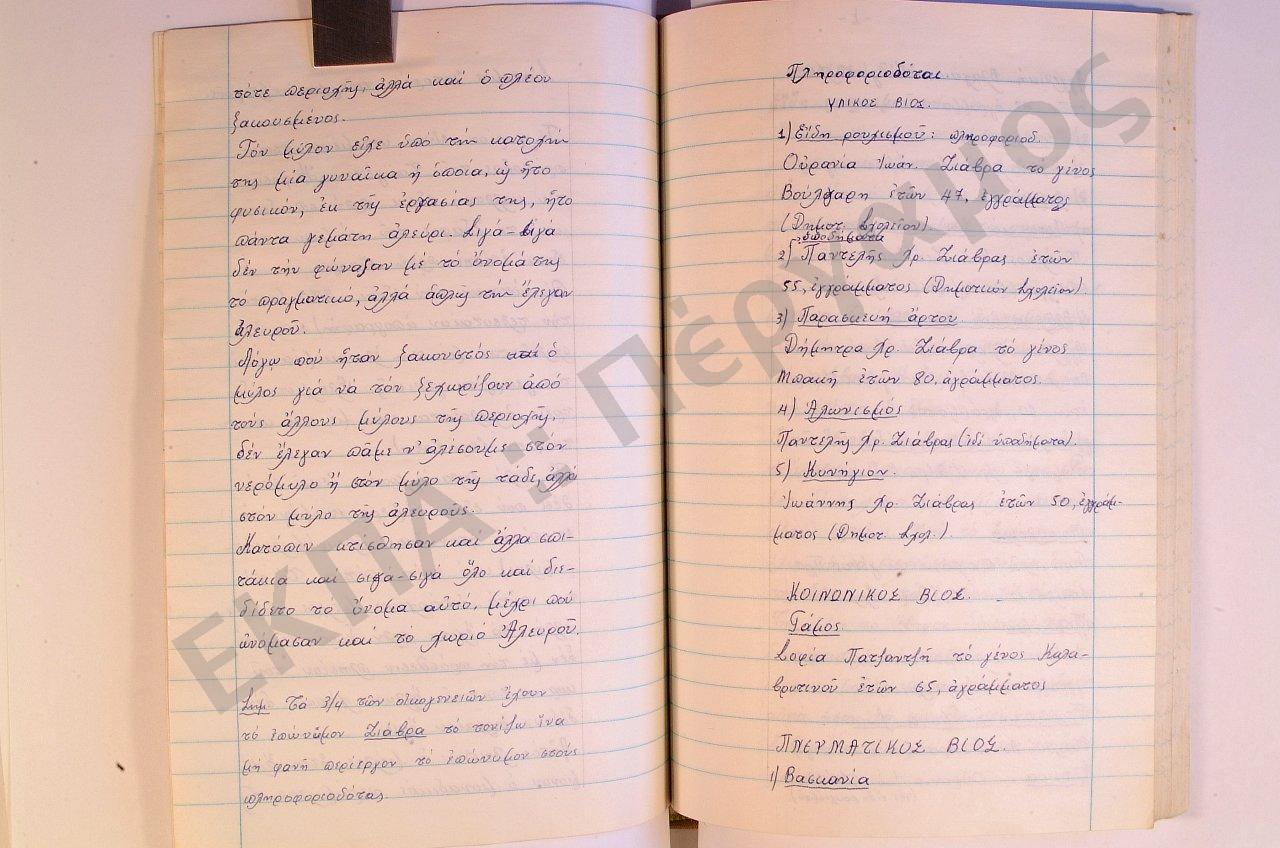 τότε περιοχῆς, ἀλλά καί ὁ πλέον
ξακουσμένος.
Τόν μύλον εἶχε ὑπό τήν κατοχήν
της μία γυναῖκα ἡ ὁποία, ὡς ἦτο
φυσικόν, ἐκ τῆς ἐργασίας της, ἦτο
πάντα γεμάτη ἀλεύρι. Σιγά-σιγά
δέν τήν φώναζαν μέ τό ὄνομά της
τό πραγματικό, ἀλλά ἁπλῶς τήν ἔλεγαν
ἀλευροῦ.
Λόγῳ πού ἦταν ξακουστός καί ὁ
μύλος γιά νά τόν ξεχωρίζουν ἀπό
τούς ἄλλους μύλους τῆς περιοχῆς,
δέν ἔλεγαν πᾶμε ν' ἀλέσουμε στόν
νερόμυλο ἤ στόν μύλο τῆς τάδε, ἀλλά
στόν μύλο τῆς ἀλευροῦς.
Κατόπιν κτίσθησαν καί ἄλλα σπι-
τάκια καί σιγά-σιγά ὅλο καί διε-
δίδετο τό ὄνομα αὐτό, μέχρι πού
ὠνόμασαν καί τό χωριό Ἀλευροῦ.
Σημ. Τά 3/4 τῶν οἰκογενειῶν ἔχουν
τό ἐπώνυμον Ζιάβρα τό τονίζω ἵνα
μή φανῆ περίεργον τό ἐπώνυμον στούς
πληροφοριοδότας.
Πληροφοριοδόται
ΥΛΙΚΟΣ ΒΙΟΣ.
1) Εἴδη ρουχισμοῦ: πληροφοριοδ.
Οὐρανία Ἰωάν. Ζιάβρα τό γένος
Βούλγαρη ἐτῶν 47, ἐγγράμματος
(Δημοτ. Σχολεῖον).
ὑποδήματα
2) Παντελῆς Χρ. Ζιάβρας ἐτῶν
55, ἐγγράμματος (Δημοτικόν Σχολεῖον).
3) Παρασκευή ἄρτου
Δήμητρα Χρ. Ζιάβρα τό γένος
Μπακῆ ἐτῶν 80, ἀγράμματος.
4) Ἁλωνισμός
Παντελῆς Χρ. Ζιάβρας (ἰδέ ὑποδήματα).
5) Κυνήγιον.
Ἰωάννης Χρ. Ζιάβρας ἐτῶν 50, ἐγγράμ-
ματος (Δημοτ. Σχολ.).
ΚΟΙΝΩΝΙΚΟΣ ΒΙΟΣ.
Γάμος.
Σοφία Πατζαντζῆ τό γένος Καλα-
βρυτινοῦ ἐτῶν 65, ἀγράμματος
ΠΝΕΥΜΑΤΙΚΟΣ ΒΙΟΣ.
1) Βασκανία
ΕΚΠΑ :: Πέργαμος